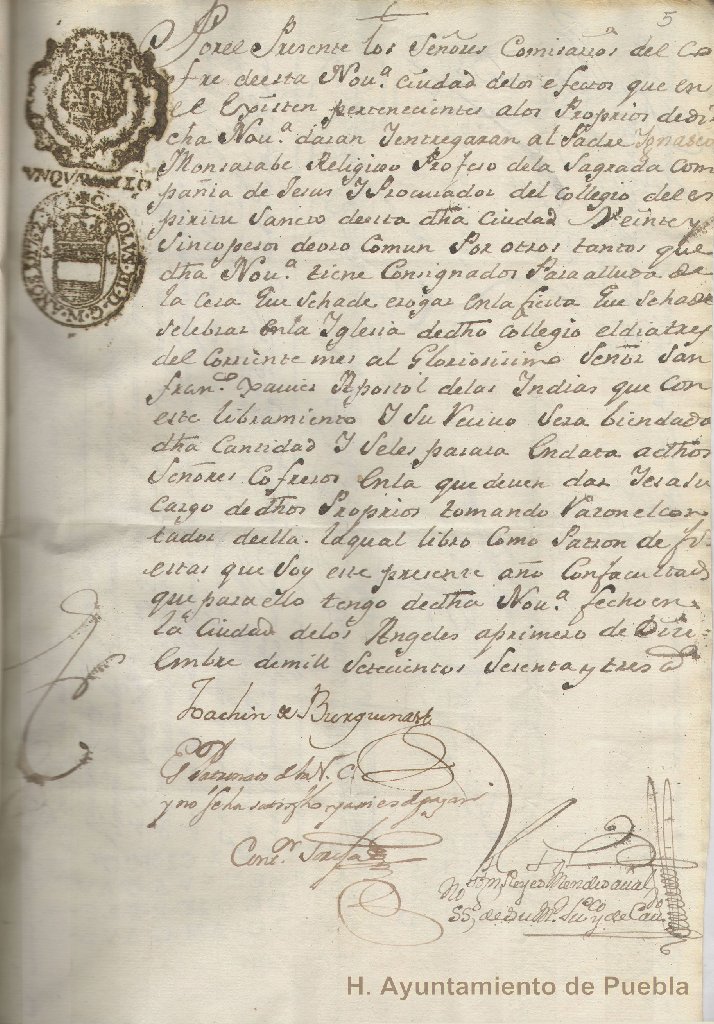 5
Porel Presente los Señores Comisarios del Co
fre deesta Nou.ª Ciudad delos efectos que en
el Existen pertenecientes alos Proprios dedi
cha Nou.ª daran Ientregaran al Padre Ignasio
Monsarabe Religioso Profeso dela Sagrada Com
pania de Jesus I Procurador del Collegio del es
piritu Sancto desta dha Ciudad Veinte y
Sinco pesos deoro Comun Por otros tantos que
dha Nou.ª tiene Consignados Para alluda de
la Cera Que Sehade erogar enla fiesta Que Sehade
Selebrar enla Iglesia dedho Collegio eldia tres
del Corriente mes al Gloriosisimo Señor San
fran.co Xauier Apostol delas Indias que Con
este libramiento I Su Reciuo Sera biendado
dha Cantidad I Seles pasara Endata adhos
Señores Cofreros Enla que deuen dar Iesasu
Cargo dedhos Proprios tomando Razon el Con
tador deella. laqual libro Como Patron de fi
estas que Soy este presente año Confacultad
que para ello tengo dedha Nou.ª fecho en
la Ciudad delos Angeles aprimero de Dizi-
embre demill Setecientos Sesenta y tres a.s
Joachin de
El Patronato de la N. C.
y no
SS.no de Su M.
H. Ayuntamiento de Puebla